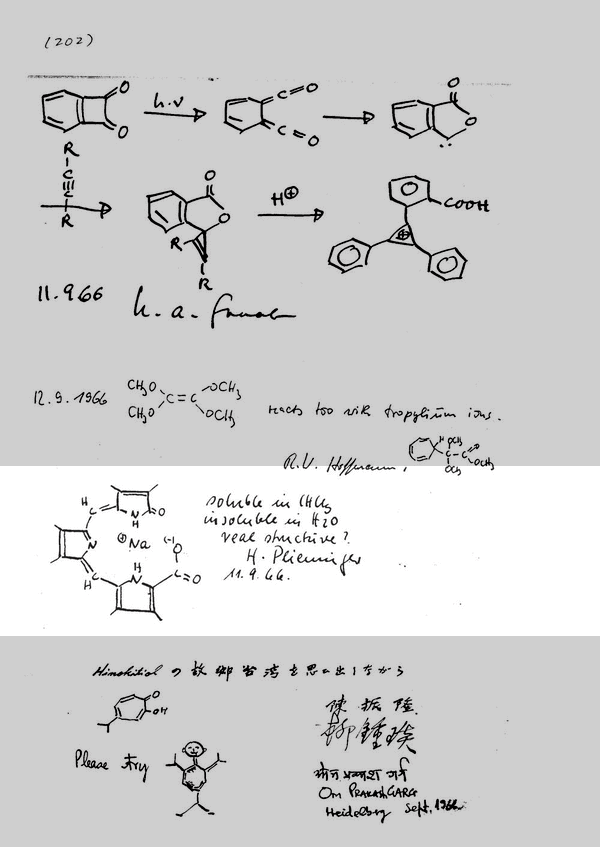 (202)
h.ν
H⊕
COOH
11.9.66
h. a.
12.9.1966 CH₃O CH₃O C=C OCH₃ OCH₃ reacts too with tropylium ions.
R.W. Hoffmann,
soluble in CHCl₃
insoluble in H2O
real structure?
H. Plieninger
11.9.66.
⊕Na
Hinokitiol の故郷台湾を思い出しながら
OH
陳振隆
Please try
ओम प्रकाश गर्ग
Om PRAKASH GARG
Heidelberg Sept. 1966